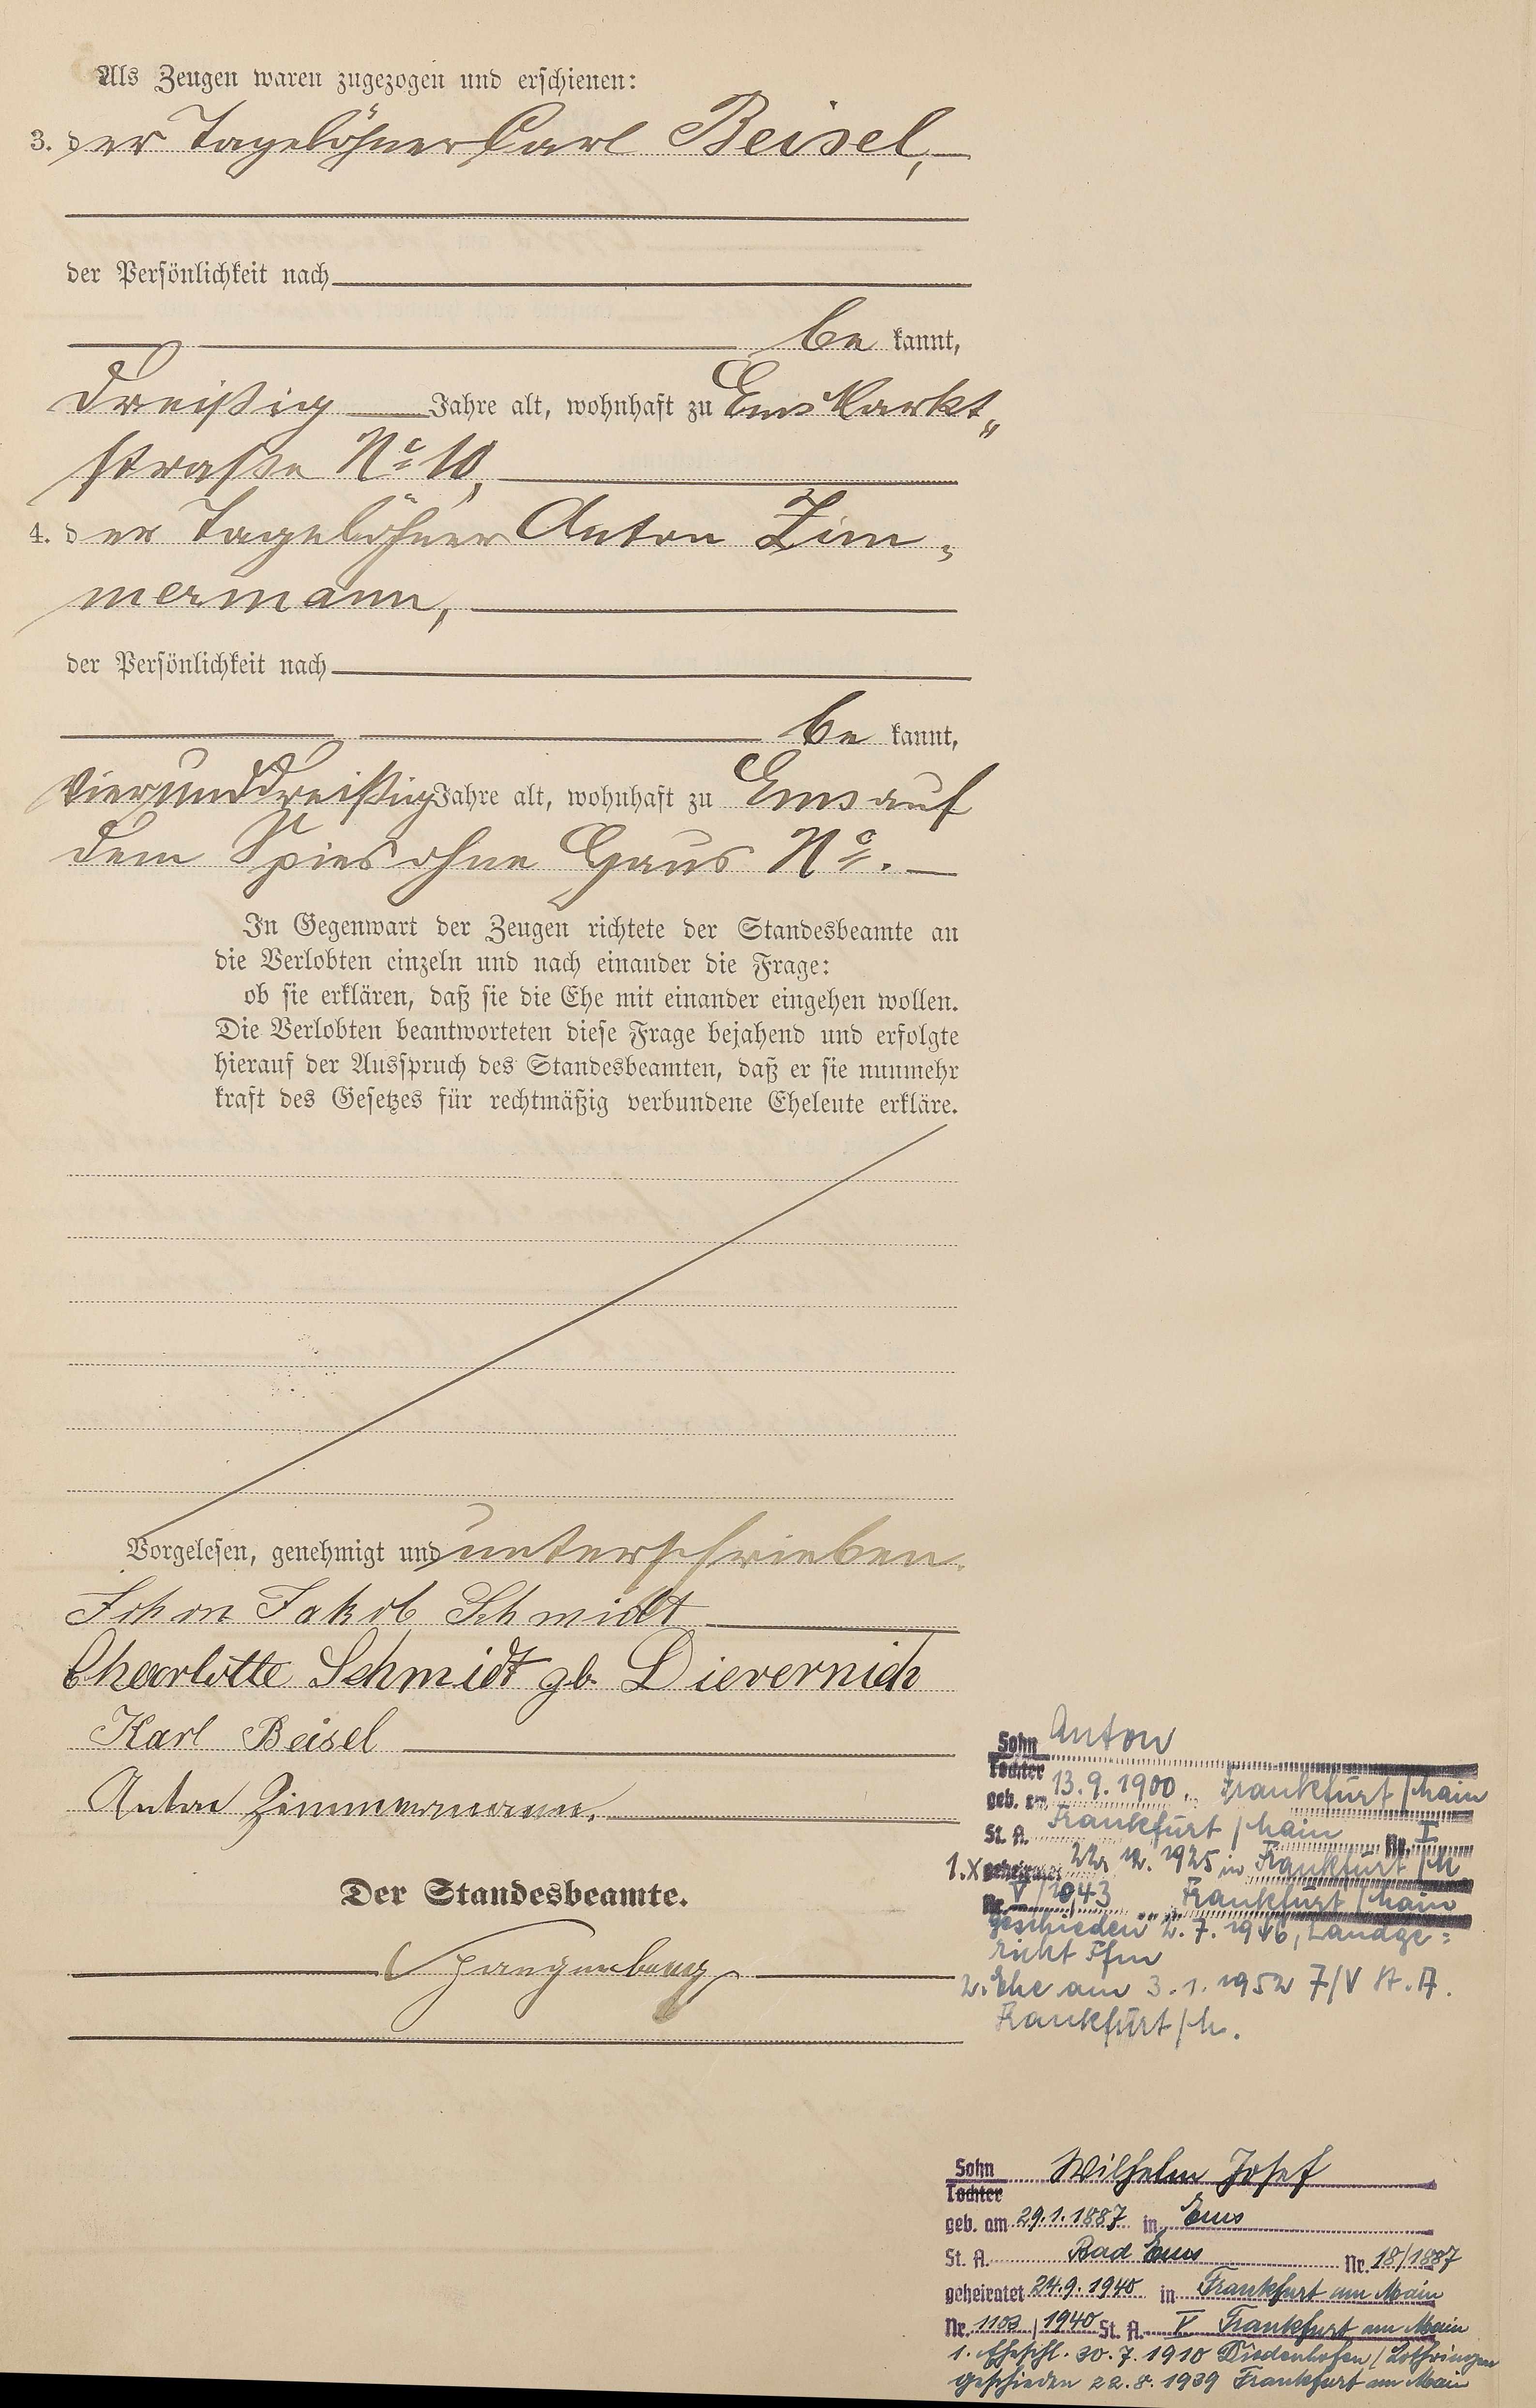 Als Zeugen waren zugezogen und erschienen:
3. der Tagelöhner Carl Beisel,
der Persönlichkeit nach
be kannt,
dreißig Jahre alt, wohnhaft zu Ems Markt„
straße No 10,
4. der Tagelöhner Anton Zim„
mermann,
der Persönlichkeit nach
be kannt,
vierunddreißig Jahre alt, wohnhaft zu Ems auf
dem Spies ohne Haus No.
In Gegenwart der Zeugen richtete der Standesbeamte an
die Verlobten einzeln und nach einander die Frage:
ob sie erklären, daß sie die Ehe mit einander eingehen wollen.
Die Verlobten beantworteten diese Frage bejahend und erfolgte
hierauf der Ausspruch des Standesbeamten, daß er sie nunmehr
kraft des Gesetzes für rechtmäßig verbundene Eheleute erkläre.
Vorgelesen, genehmigt und unterschrieben.
Johon Jakob Schmidt
Charlotte Schmidt gb. Dievernich
Karl Beisel
Anton Zimmermann.
Der Standesbeamte.
Spangenberg
Sohn Anton
Tochter
geb. am 13.9.1900 Frankfurt/Main
St. A. Frankfurt/Main Nr. I
1.X geheiratet 22. 12. 1925 in Frankfurt/M
Nr. V/1043 Frankfurt/Main
geschieden 2.7.1946, Landge=
richt Ffm
2. Ehe am 3.1.1952 7/V St.A.
Frankfurt/M.
Sohn Wilhelm Josef
Tochter
geb. am 29.1.1887 in Ems
St. A. Bad Ems Nr. 18/1887
geheiratet 24.9.1940 in Frankfurt am Main
Nr. 1103/1940 St. A. V Frankfurt am Main
1. Eheschl. 30.7.1910 Diedenhofen/Lothringen
geschieden 22.8.1939 Frankfurt am Main